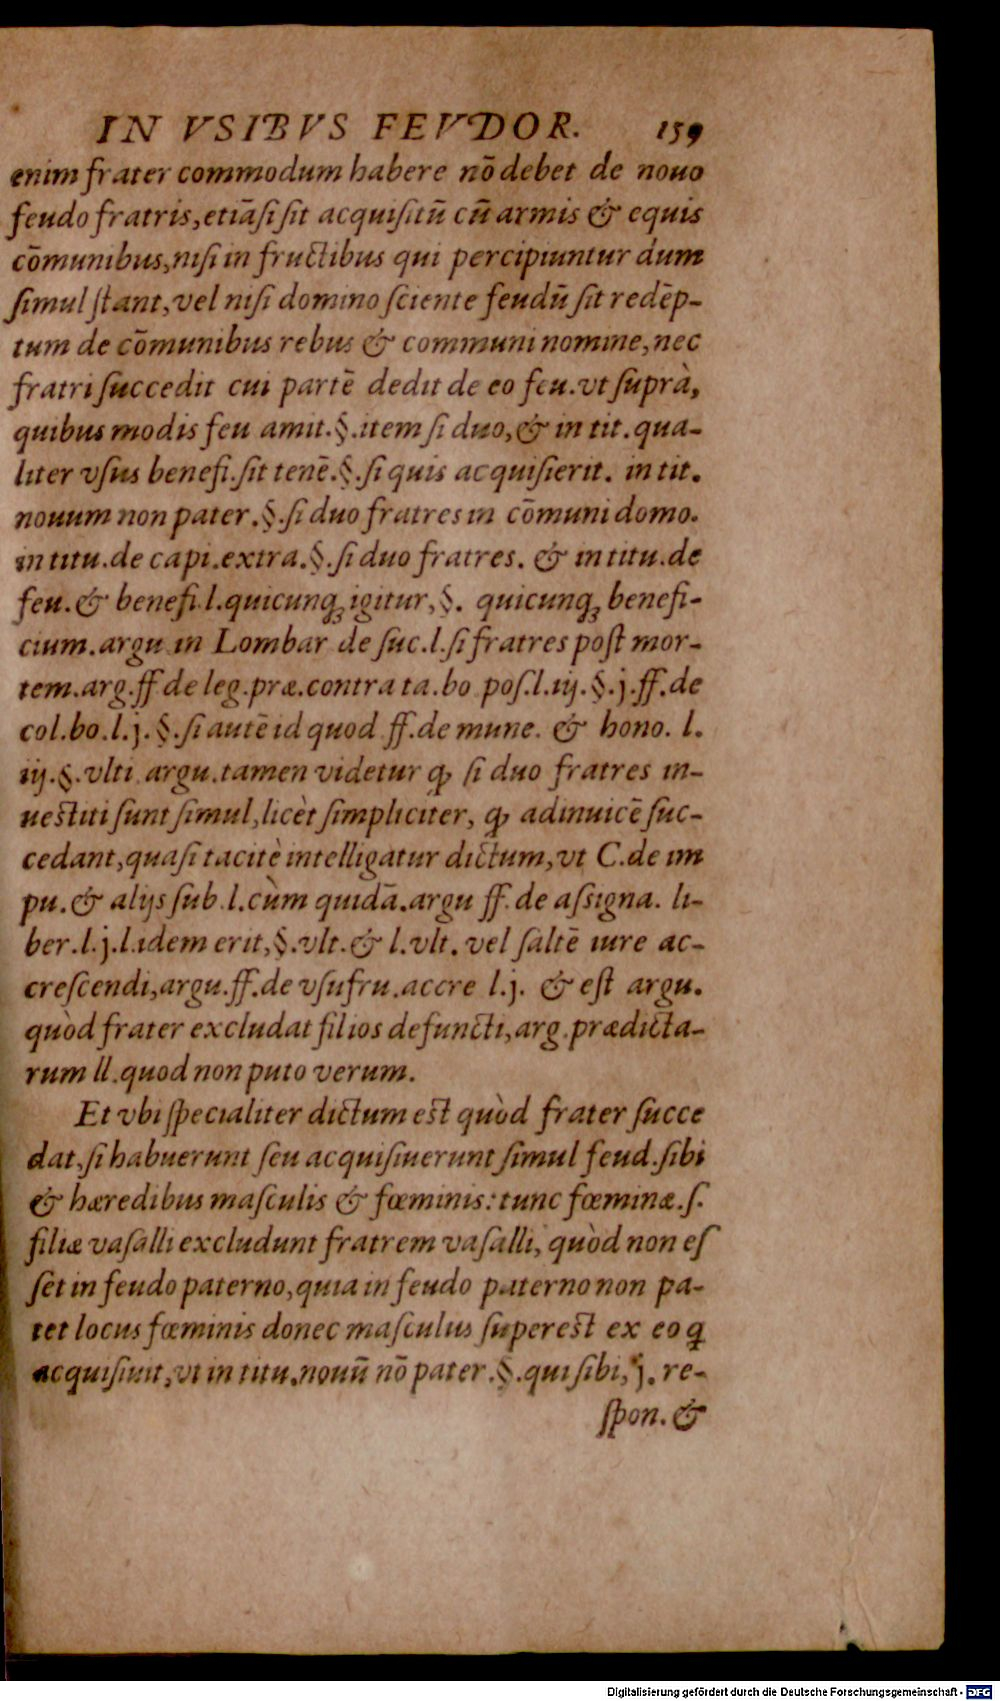 IN VSIBVS FEVDOR. 159
enim frater commodum habere nō debet de nouo
feudo fratris, etiāsi sit acquisitū cū armis & equis
cōmunibus, nisi in fructibus qui percipiuntur dum
simul stant, vel nisi domino sciente feudū sit redēp-
tum de cōmunibus rebus & communi nomine, nec
fratri succedit cui partē dedit de eo feu. vt suprà,
quibus modis feu amit. §. item si duo, & in tit. qua-
liter vsus benefi. sit tenē. §. si quis acquisierit. in tit.
nouum non pater. §. si duo fratres in cōmuni domo.
in titu. de capi. extra. §. si duo fratres. & in titu. de
feu. & benefi l. quicunqꝫ igitur, §. quicunqꝫ benefi-
cium. argu in Lombar de suc. l. si fratres post mor-
tem. arg. ff de leg. præ. contra ta. bo pos. l. iij. §. j. ff. de
col. bo. l. j. §. si autē id quod ff. de mune. & hono. l.
iij. §. vlti argu. tamen videtur ꝙ si duo fratres in-
uestiti sunt simul, licèt simpliciter, ꝙ adinuicē suc-
cedant, quasi tacitè intelligatur dictum, vt C. de im
pu. & alijs sub l. cùm quidā. argu ff. de assigna. li-
ber. l. j. l. idem erit, §. vlt. & l. vlt. vel saltē iure ac-
crescendi, argu. ff. de vsufru. accre l. j. & est argu.
quòd frater excludat filios defuncti, arg. prædicta-
rum ll. quod non puto verum.
Et vbi specialiter dictum est quòd frater succe
dat, si habuerunt seu acquisiuerunt simul feud. sibi
& hæredibus masculis & fœminis: tunc fœminæ. s.
filiæ vasalli excludunt fratrem vasalli, quòd non es
set in feudo paterno, quia in feudo paterno non pa-
tet locus fœminis donec masculus superest ex eo ꝗ
acquisiuit, vt in titu. nouū nō pater. §. qui sibi, j. re-
spon. &
Digitalisierung gefördert durch die Deutsche Forschungsgemeinschaft - DFG